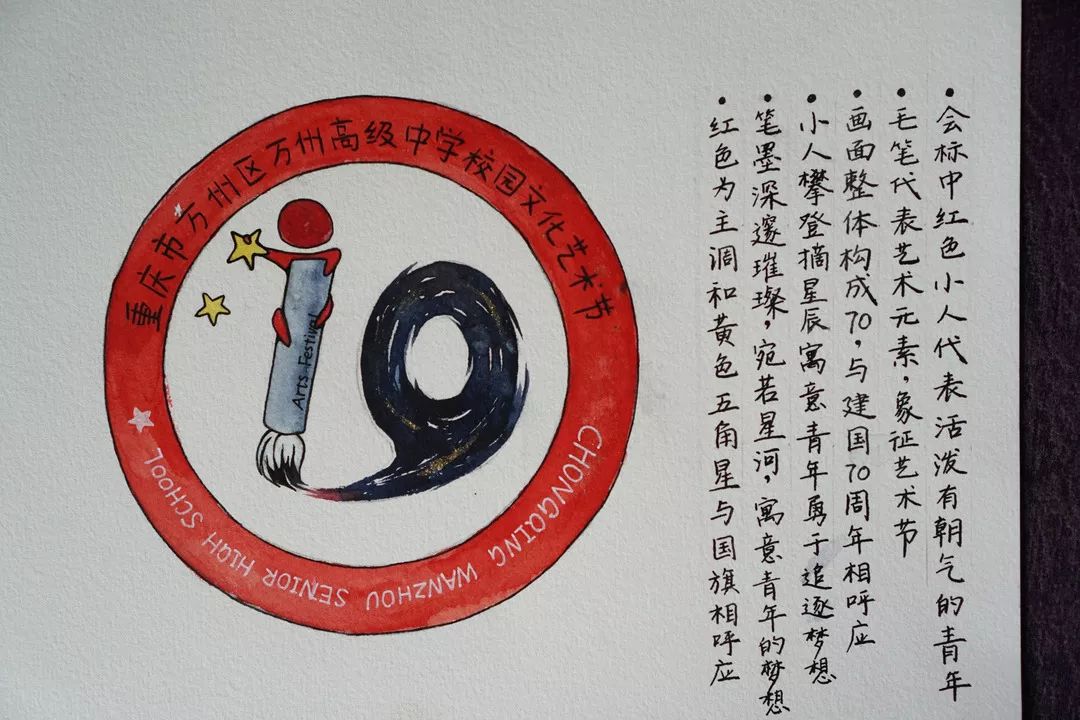 重庆市万州区万州高级中学校园文化艺术节
Arts Festival
CHONGQING WANZHOU SENIOR HIGH SCHOOL
•会标中红色小人代表活泼有朝气的青年
•毛笔代表艺术元素,象征艺术节
•画面整体构成70,与建国70周年相呼应
•小人攀登摘星辰寓意青年勇于追逐梦想
•笔墨深邃璀璨,宛若星河,寓意青年的梦想
•红色为主调和黄色五角星与国旗相呼应